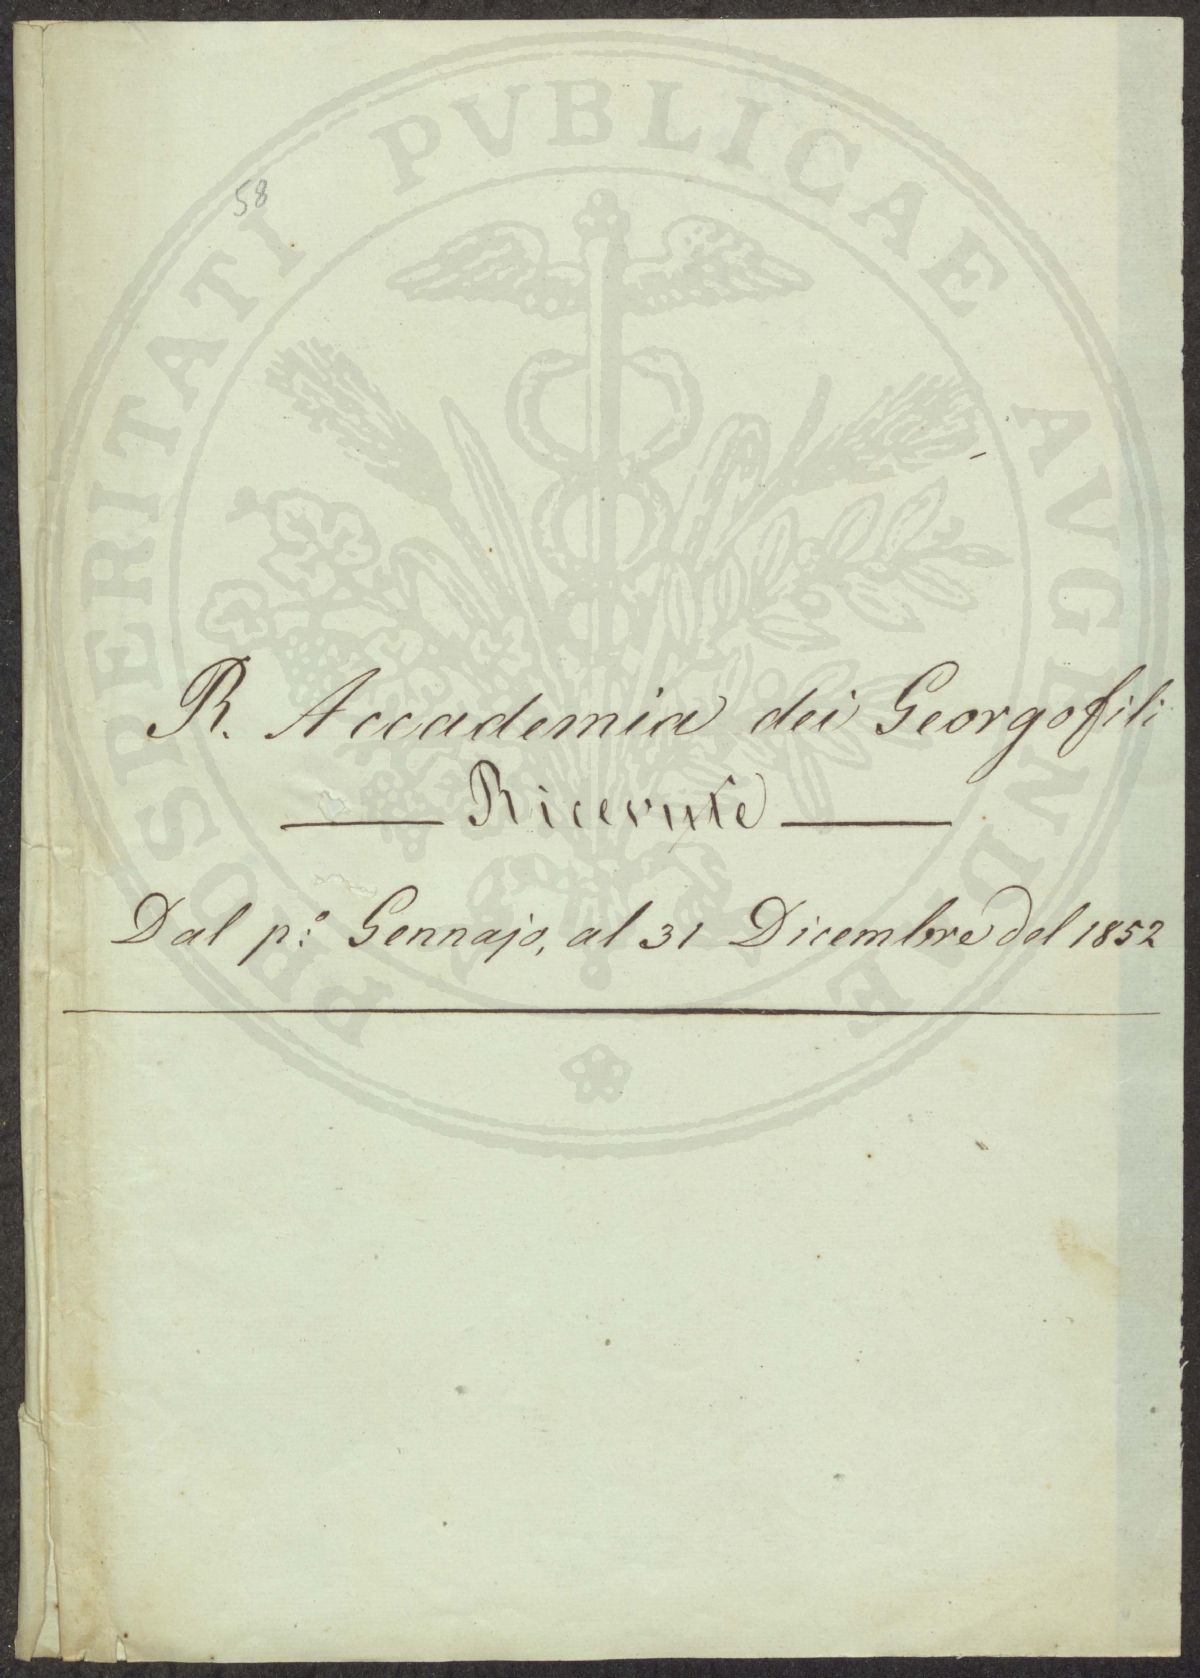 58
PROSPERITATI PVBLICAE AVGENDAE
R. Accademia dei Georgofili
Ricevute
Dal p.º Gennajo, al 31 Dicembre del 1852